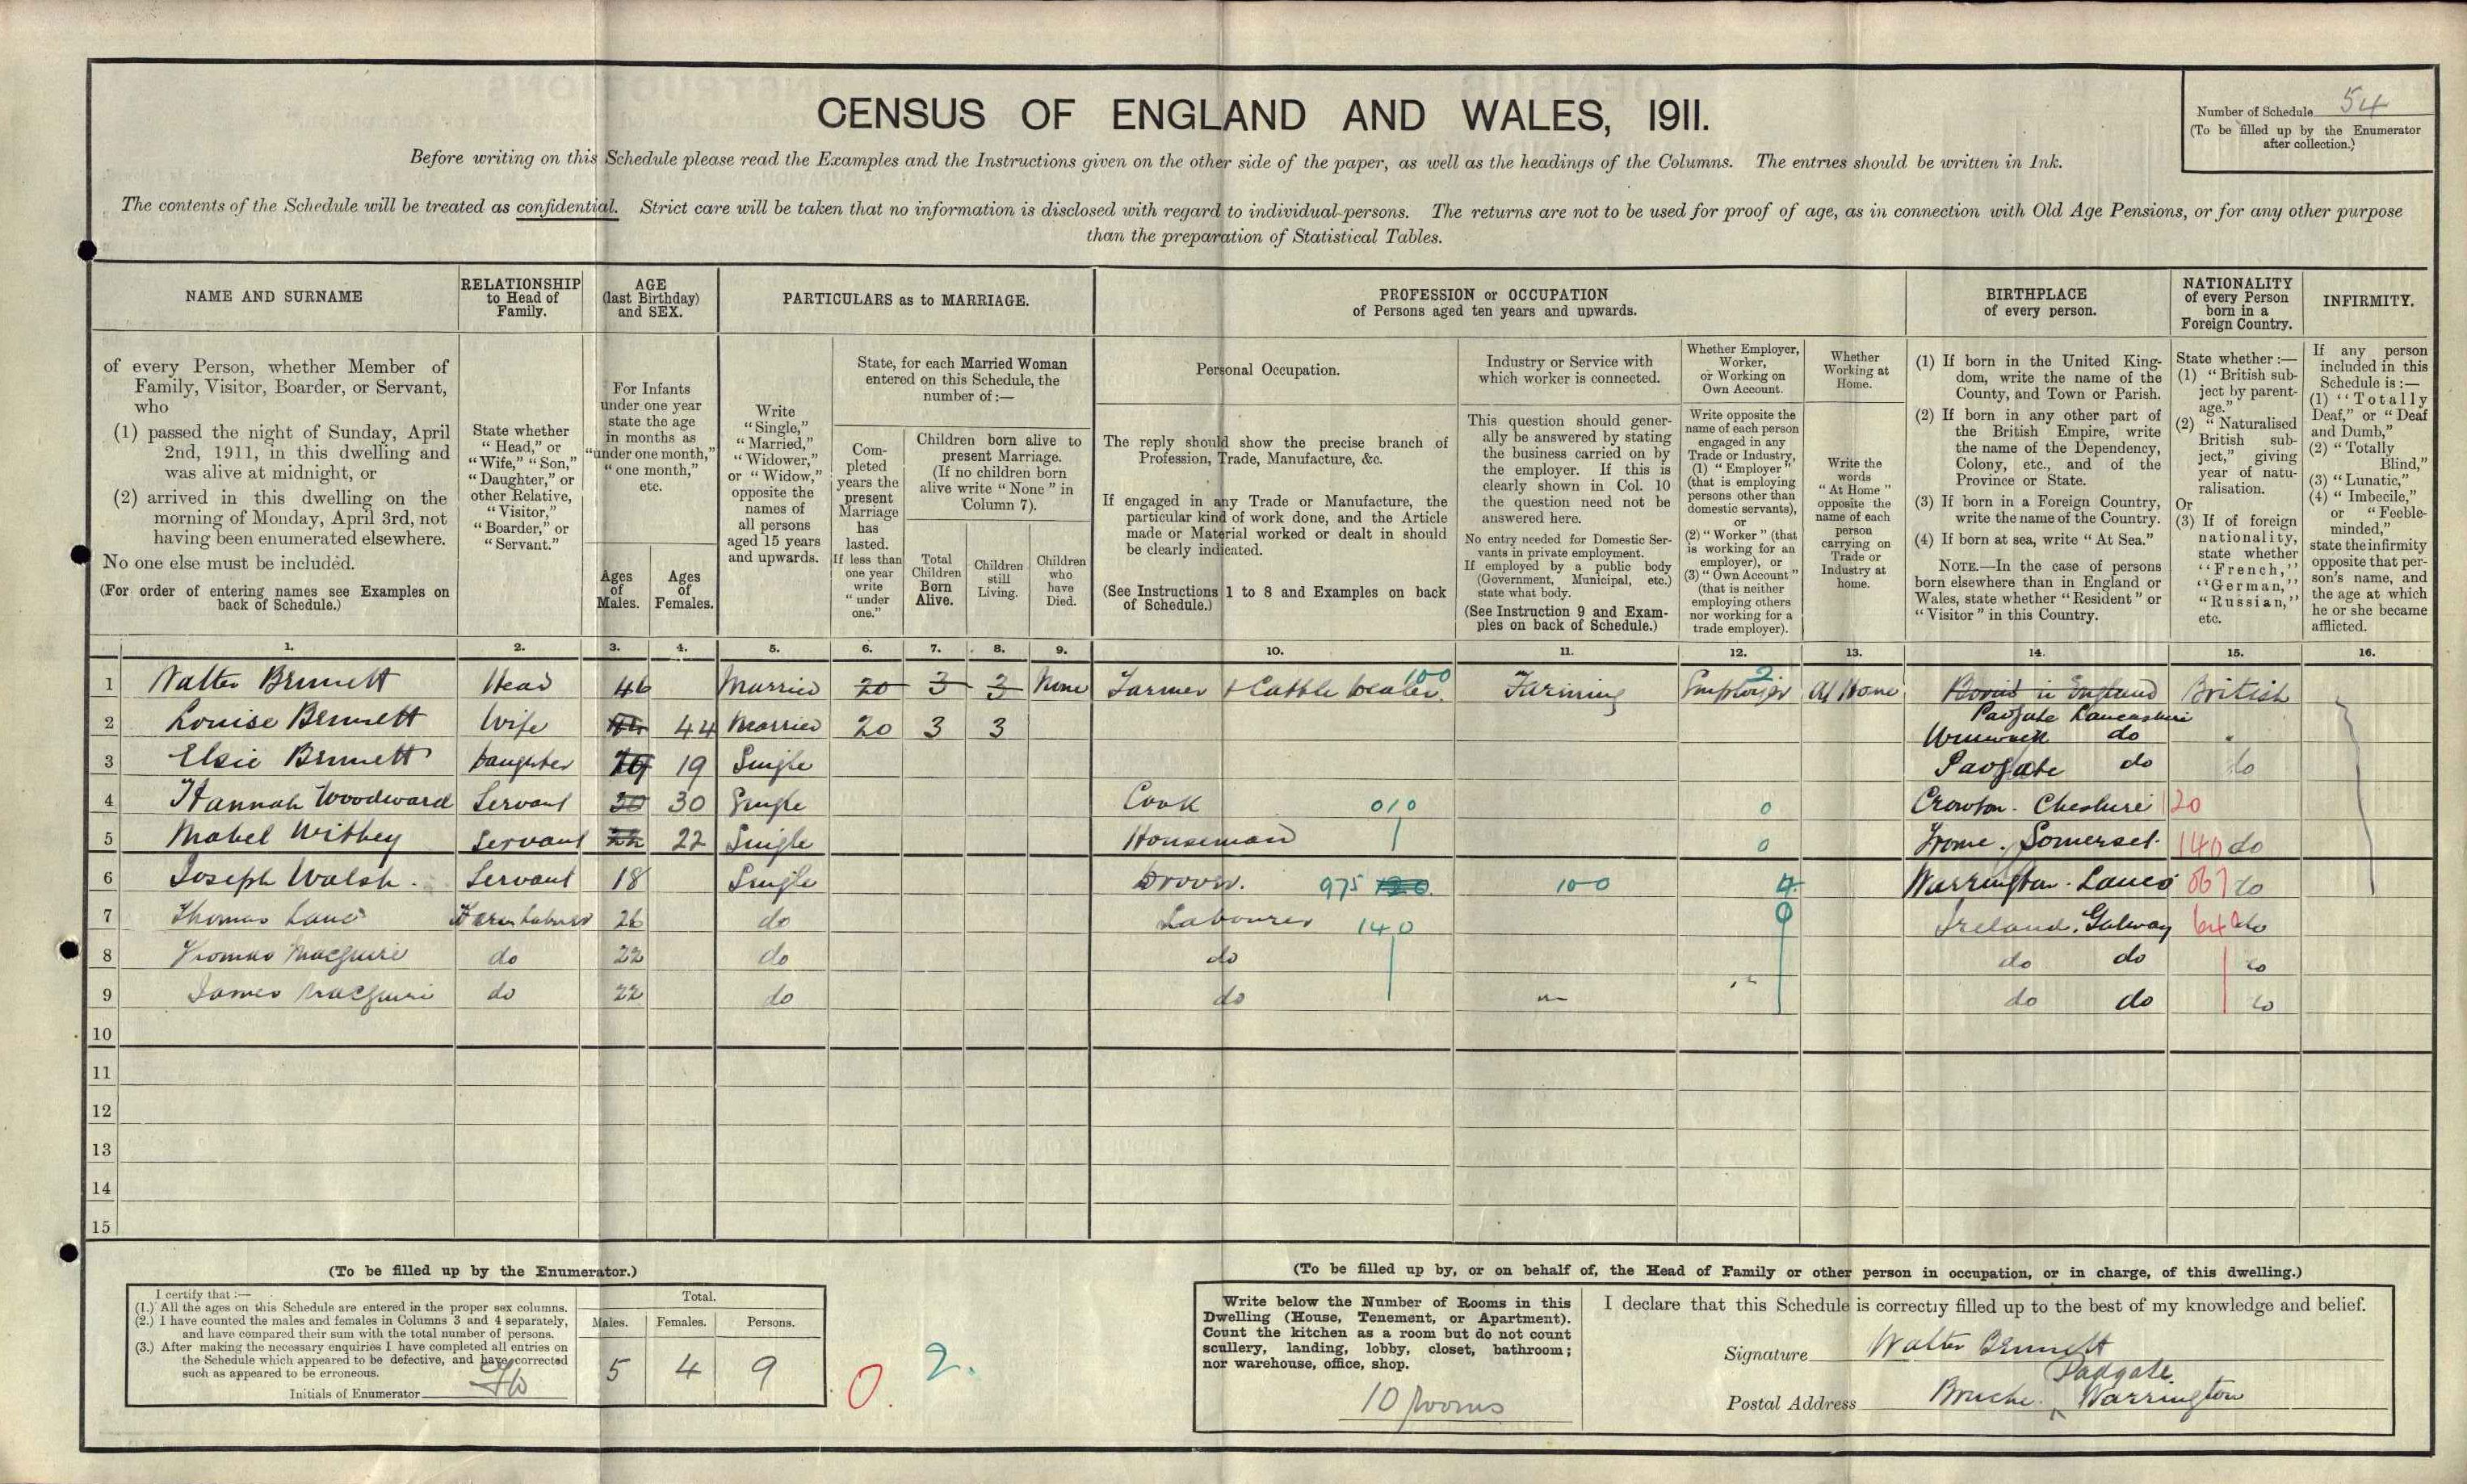 CENSUS OF ENGLAND AND WALES, 1911.
Number of Schedule 54
(To be filled up by the Enumerator
after collection.)
Before writing on this Schedule please read the Examples and the Instructions given on the other side of the paper, as well as the headings of the Columns. The entries should be written in Ink.
The contents of the Schedule will be treated as confidential. Strict care will be taken that no information is disclosed with regard to individual persons. The returns are not to be used for proof of age, as in connection with Old Age Pensions, or for any other purpose
than the preparation of Statistical Tables.
NAME AND SURNAME
of every Person, whether Member of
Family, Visitor, Boarder, or Servant,
who
(1) passed the night of Sunday, April
2nd, 1911, in this dwelling and
was alive at midnight, or
(2) arrived in this dwelling on the
morning of Monday, April 3rd, not
having been enumerated elsewhere.
No one else must be included.
(For order of entering names see Examples on
back of Schedule.)
RELATIONSHIP
to Head of
Family.
State whether
"Head," or
"Wife," "Son,"
"Daughter," or
other Relative,
"Visitor,"
"Boarder," or
"Servant."
AGE
(last Birthday)
and SEX.
For Infants
under one year
state the age
in months as
"under one month,"
"one month,"
etc.
Ages
of
Males.
Ages
of
Females.
PARTICULARS as to MARRIAGE.
Write
"Single,"
"Married,"
"Widower,"
or "Widow,"
opposite the
names of
all persons
aged 15 years
and upwards.
State, for each Married Woman
entered on this Schedule, the
number of:—
Com-
pleted
years the
present
Marriage
has
lasted.
If less than
one year
write
"under
one."
Children born alive to
present Marriage.
(If no children born
alive write "None" in
Column 7).
Total
Children
Born
Alive.
Children
still
Living.
Children
who
have
Died.
PROFESSION or OCCUPATION
of Persons aged ten years and upwards.
Personal Occupation.
The reply should show the precise branch of
Profession, Trade, Manufacture, &c.
If engaged in any Trade or Manufacture, the
particular kind of work done, and the Article
made or Material worked or dealt in should
be clearly indicated.
(See Instructions 1 to 8 and Examples on back
of Schedule.)
Industry or Service with
which worker is connected.
This question should gener-
ally be answered by stating
the business carried on by
the employer. If this is
clearly shown in Col. 10
the question need not be
answered here.
No entry needed for Domestic Ser-
vants in private employment.
If employed by a public body
(Government, Municipal, etc.)
state what body.
(See Instruction 9 and Exam-
ples on back of Schedule.)
Whether Employer,
Worker,
or Working on
Own Account.
Write opposite the
name of each person
engaged in any
Trade or Industry,
(1) "Employer"
(that is employing
persons other than
domestic servants),
or
(2) "Worker" (that
is working for an
employer), or
(3) "Own Account"
(that is neither
employing others
nor working for a
trade employer).
Whether
Working at
Home.
Write the
words
"At Home"
opposite the
name of each
person
carrying on
Trade or
Industry at
home.
BIRTHPLACE
of every person.
(1) If born in the United King-
dom, write the name of the
County, and Town or Parish.
(2) If born in any other part of
the British Empire, write
the name of the Dependency,
Colony, etc., and of the
Province or State.
(3) If born in a Foreign Country,
write the name of the Country.
(4) If born at sea, write "At Sea."
NOTE.—In the case of persons
born elsewhere than in England or
Wales, state whether "Resident" or
"Visitor" in this Country.
NATIONALITY
of every Person
born in a
Foreign Country.
State whether:—
(1) "British sub-
ject by parent-
age."
(2) "Naturalised
British sub-
ject," giving
year of natu-
ralisation.
Or
(3) If of foreign
nationality,
state whether
"French,"
"German,"
"Russian,"
etc.
INFIRMITY.
If any person
included in this
Schedule is:—
(1) "Totally
Deaf," or "Deaf
and Dumb,"
(2) "Totally
Blind,"
(3) "Lunatic,"
(4) "Imbecile,"
or "Feeble-
minded,"
state the infirmity
opposite that per-
son's name, and
the age at which
he or she became
afflicted.
1. 2. 3. 4. 5. 6. 7. 8. 9. 10. 11. 12. 13. 14. 15. 16.
1 Walter Bennett Head 46 Married 20 3 3 None Farmer & Cattle Dealer. 100 Farming Employer 2. At Home Born in England British
Padgate Lancashire
2 Louise Bennett Wife 44 44 Married 20 3 3 Winwick do "
3 Elsie Bennett Daughter 19 19 Single Padgate do do
4 Hannah Woodward Servant 30 30 Single Cook 010 0 Crowton. Cheshire 120
5 Mabel Withey Servant 22 22 Single Housemaid 0 Frome. Somerset. 140 do
6 Joseph Walsh. Servant 18 Single Drover. 975 120 100 4 Warrington. Lancs 061 do
7 Thomas Lane Farm Labourer 26 do Labourer 140 0 Ireland, Galway 640 do
8 Thomas Macguire do 22 do do do do do
9 James Macguire do 22 do do do do do
10
11
12
13
14
15
(To be filled up by the Enumerator.)
I certify that:—
(1.) All the ages on this Schedule are entered in the proper sex columns.
(2.) I have counted the males and females in Columns 3 and 4 separately,
and have compared their sum with the total number of persons.
(3.) After making the necessary enquiries I have completed all entries on
the Schedule which appeared to be defective, and have corrected
such as appeared to be erroneous.
Initials of Enumerator
Total.
Males. Females. Persons.
5 4 9
0. 2.
(To be filled up by, or on behalf of, the Head of Family or other person in occupation, or in charge, of this dwelling.)
Write below the Number of Rooms in this
Dwelling (House, Tenement, or Apartment).
Count the kitchen as a room but do not count
scullery, landing, lobby, closet, bathroom;
nor warehouse, office, shop.
10 Rooms
I declare that this Schedule is correctly filled up to the best of my knowledge and belief.
Signature Walter Bennett
Padgate
Postal Address Bruche. Warrington